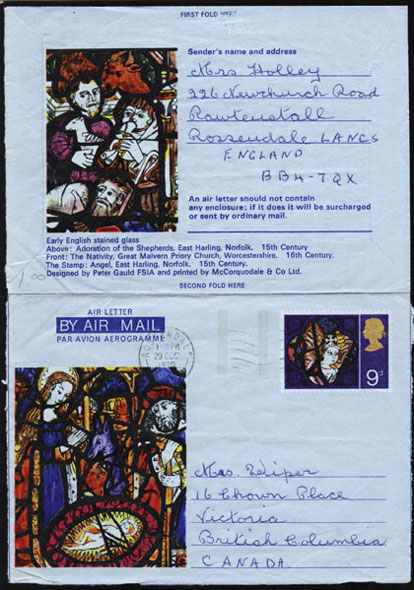 FIRST FOLD HERE
Sender's name and address
Mrs Holley
226 Newchurch Road
Rawtenstall
Rossendale LANCS
ENGLAND
BB4-7QX
An air letter should not contain
any enclosure; if it does it will be surcharged
or sent by ordinary mail.
Early English stained glass
Above: Adoration of the Shepherds, East Harling, Norfolk. 15th Century
Front: The Nativity, Great Malvern Priory Church, Worcestershire. 16th Century.
The Stamp: Angel, East Harling, Norfolk. 15th Century.
Designed by Peter Gauld FSIA and printed by McCorquodale & Co Ltd.
1.00
SECOND FOLD HERE
AIR LETTER
BY AIR MAIL
PAR AVION AEROGRAMME
ROSSENDALE
29 DEC
1970
9d
Mrs. Kiper
16 Chown Place
Victoria
British Columbia
CANADA